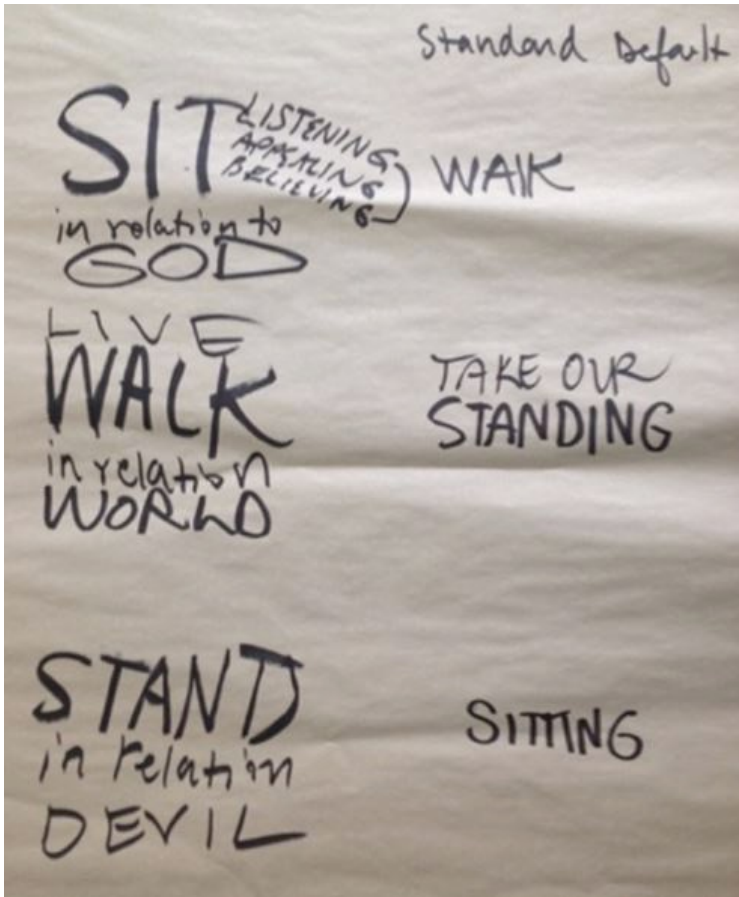 Standard Default
SIT
LISTENING
APPEALING
BELIEVING
WALK
in relation to
GOD
LIVE
WALK
in relation
WORLD
TAKE OUR
STANDING
STAND
in relation
DEVIL
SITTING